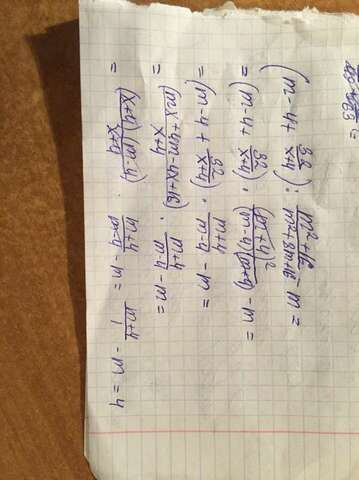 (m - 4 + 32/x+4) : m²+16/m²+8m+16 - m =
= (m - 4 + 32/x+4) : (m-4)(m+4)/(m+4)² - m =
= (m - 4 + 32/x+4) · m+4/m-4 - m =
= (mx+4m-4x+16)/x+4 · m+4/m-4 - m =
= (x+4)(m-4)/x+4 · m+4/m-4 - m = 1/m+4 - m = 4